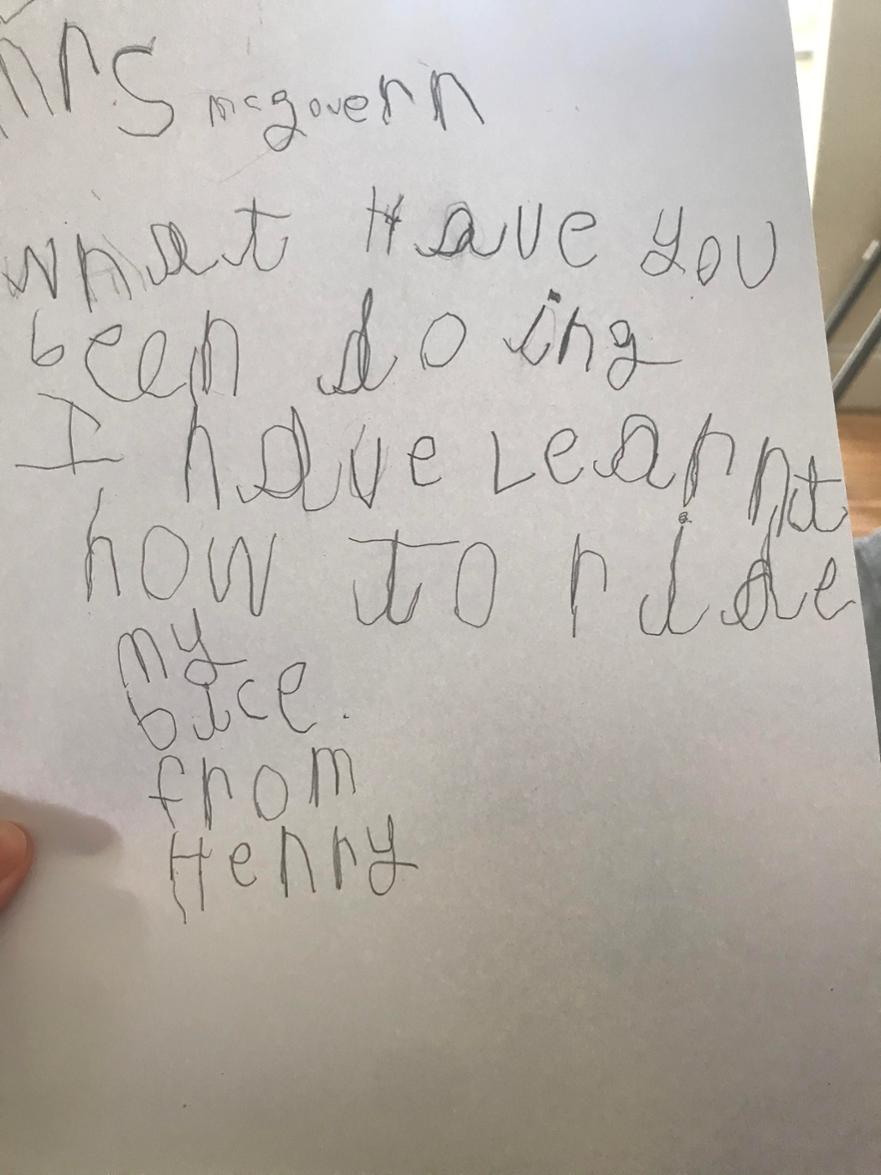 Mrs mcgovern
what Have you
been doing
I have Learnt
how to ride
my
bice.
from
Henry